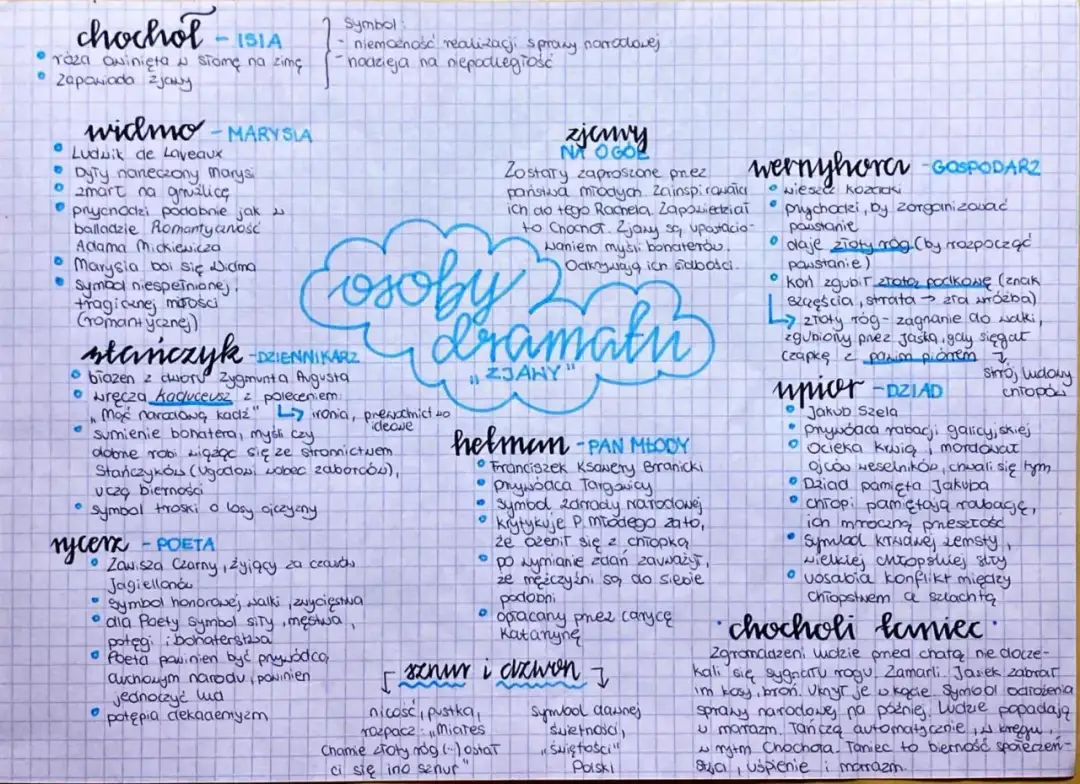 chochoł - ISIA
• róża owinięta w słomę na zimę
• zapowiada zjawy
Symbol:
- niemożność realizacji sprawy narodowej
- nadzieja na niepodległość
widmo - MARYSIA
• Ludwik de Laveaux
• były narzeczony Marysi
• zmarł na gruźlicę
• przychodzi podobnie jak w
balladzie Romantyczność
Adama Mickiewicza
• Marysia boi się widma
• symbol niespełnionej,
tragicznej miłości
(romantycznej)
zjawy
NA OGÓŁ
Zostały zaproszone przez
państwa młodych. Zainspirowała
ich do tego Rachela. Zapowiedział
to Chochoł. Zjawy są uposacio-
waniem myśli bohaterów.
Odkrywają ich słabości.
wernyhora - GOSPODARZ
• wieszcz kozacki
• przychodzi, by zorganizować
powstanie
• daje złoty róg (by rozpocząć
powstanie)
• koń zgubił złotą podkowę (znak
szczęścia, strata → zła wróżba)
↳ złoty róg - zagnanie do walki,
zgubiony przez Jaśka, gdy sięgał
czapkę z pawim piórem
strój ludowy
chłopów
osoby
dramatu
"ZJAWY"
stańczyk - DZIENNIKARZ
• błazen z dworu Zygmunta Augusta
• wręcza kaduceusz z poleceniem:
„Mąć narodową kadź" ↳ ironia, przewodnictwo
ideowe
• sumienie bohatera, myśli czy
dobrze robi wiążąc się ze stronnictwem
Stańczyków (ugodowi wobec zaborców),
uczą bierności
• symbol troski o losy ojczyzny
rycerz - POETA
• Zawisza Czarny, żyjący za czasów
Jagiellonów
• symbol honorowej walki, zwycięstwa
• dla Poety symbol siły, męstwa,
potęgi i bohaterstwa
• Poeta powinien być przywódcą
duchowym narodu, powinien
jednoczyć lud
• potępia dekadentyzm
hetman - PAN MŁODY
• Franciszek Ksawery Branicki
• przywódca Targowicy
• symbol zdrady narodowej
• krytykuje P. Młodego za to,
że ożenił się z chłopką
• po wymianie zdań zauważył,
że mężczyźni są do siebie
podobni
• opłacany przez carycę
Katarzynę
upiór - DZIAD
• Jakub Szela
• przywódca rabacji galicyjskiej
• Ocieka krwią, mordował
ojców weselników, chwali się tym
• Dziad pamięta Jakuba
• chłopi pamiętają rabację,
ich mroczną przeszłość
• symbol krwawej zemsty,
wielkiej chłopskiej siły
• uosabia konflikt między
chłopstwem a szlachtą
sznur i dzwon
nicość, pustka,
rozpacz: „Miałeś
chamie złoty róg (-) ostał
ci się ino sznur"
symbol dawnej
świetności,
„świętości"
Polski
• chocholi taniec •
Zgromadzeni ludzie przed chatą nie docze-
kali się sygnału rogu. Zamarli. Jasiek zabrał
im kosy, broń. Ukrył je w kącie. Symbol odroczenia
sprawy narodowej na później. Ludzie popadają
w marazm. Tańczą automatycznie, w kręgu,
w rytm Chochoła. Taniec to bierność społeczeń-
stwa, uśpienie i marazm.